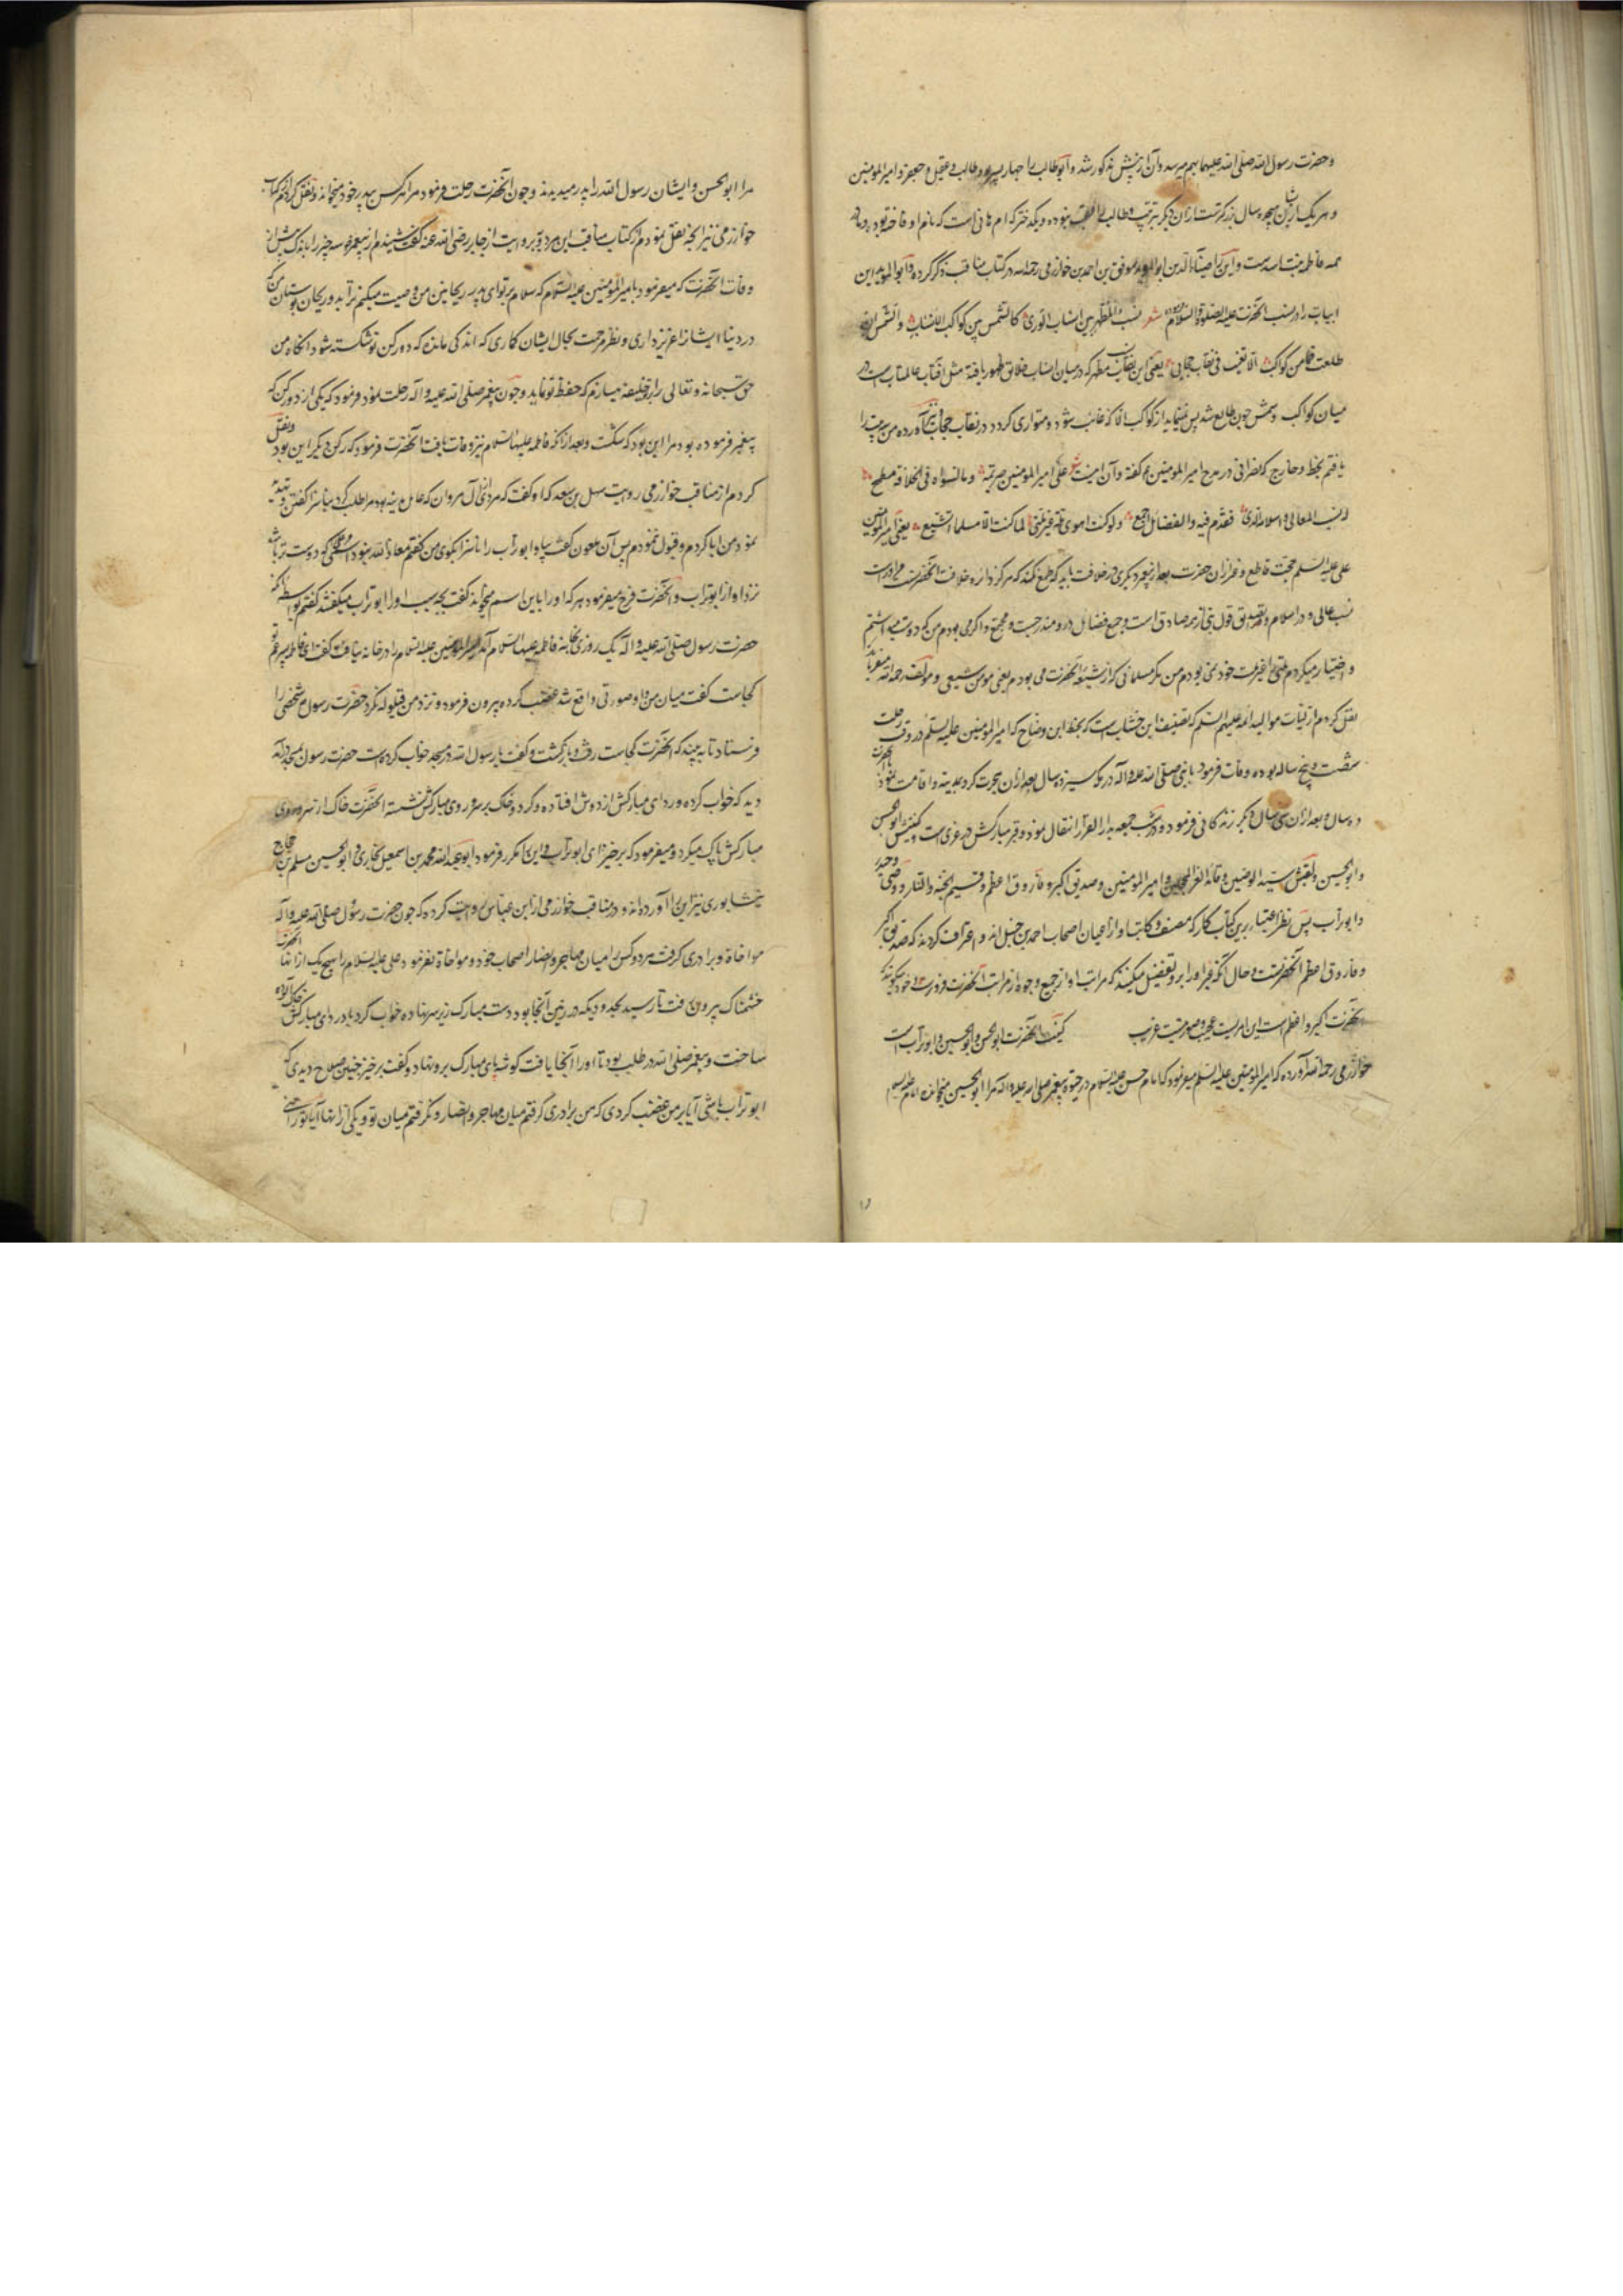 وحضرت رسول الله صلی الله علیهما بهم میرسد و آن از پیش مذکور شد و ابوطالب را چهار پسر بود طالب و عقیل و جعفر و امیرالمؤمنین
و هر یک ازیشان بده سال بزرکترست از آن دیکر بترتیب و طالب را عقب نبوده و یکدختر که ام هانی است که نام او فاخته بود و مادر
همه فاطمه بنت اسدست و این را ضیاءالدین ابوالمؤید موفق بن احمد بن خوارزمی رحمه الله در کتاب مناقب ذکر کرده و ابوالمؤید این
ابیات را در نسب آنحضرت علیه الصلوة والسلام شعر نسب المطهر بین انساب الوری کالشمس بین کواکب الانساب والشمس ان
طلعت فما من کوکب الا تغیب فی نقاب حجاب یعنی این نسب مطهر که در میان انساب خلایق ظهور یافته مثل آفتاب عالمتاب است در
میان کواکب و شمس چون طالع شد پس نمیماند از کواکب الا که غایب شود و متواری کردد در نقاب حجاب آورده من بیت را
یافتم بخط و خارج که نصرانی در مدح امیرالمؤمنین گفته و آن اینست شعر علی امیرالمؤمنین صریمة وما لسواه فی الخلافة مطمع
له النسب العالی و اسلامه الذی تقدم فیه والفضائل اجمع ولو کنت اهوی ملة غیر ملتی لما کنت الا مسلما اتشیع یعنی امیرالمؤمنین
علی علیه السلم حجت قاطع و غیر از آن حضرت بعد از پیغمبر دیکری در خلافت باید که طمع نکند که مرکز دایره خلافت آنحضرت
نسب عالی و در اسلام و تصدیق قول نبی صادق است و جمیع فضایل درو مندرجست و مجتمع و اکر می بودم من که دوست میداشتم
و اختیار میکردم ملتی را غیر ملت خود نمی بودم من مکر مسلمانی که از شیعه آنحضرت می بودم یعنی مؤمن شیعی و مؤلف رحمه الله میفرماید
نقل کردم از کتاب موالید ائمه علیهم السلم که تصنیف ابن خشاب است که بخط ابن وضاح که امیرالمؤمنین علیه السلم در وقت رحلت
شصت و پنج ساله بوده وفات فرمود با نبی صلی الله علیه و آله در مکه سیزده سال بعد از آن هجرت کرد بمدینه و اقامت نمود آنحضرت
ده سال و بعد از آن سی سال دیکر زندکانی فرمود و در شب جمعه بدارالقرار انتقال نمود و قبر مبارکش در غری است کنیتش ابوالحسن
و ابوالحسین و لقبش سید الوصیین و قائد الغر المحجلین و امیرالمؤمنین و صدیق اکبر و فاروق اعظم و قسیم الجنة والنار و وصی و حیدر
و ابوتراب پس نظر اعتبار برین کتاب کار که مصنف و کاتب او از اعیان اصحاب احمد بن حنبل اند و اعتراف کردند که صدیق اکبر
و فاروق اعظم آنحضرتست و حال آنکه غیر او را برو تفضیل میکنند که مراتب او از جمیع وجوه از مراتب آنحضرت فروتر است خود میکویند که
آنحضرت اکبر و اعظم است این امریست عجیب و صورتیست غریب کنیت آنحضرت ابوالحسن و ابوالحسین و ابوتراب است
خوارزمی رحمه الله آورده که امیرالمؤمنین علیه السلم میفرمود که امام حسن علیه السلام در حیوة پیغمبر صلی الله علیه و اله مرا ابوالحسین میخواند و امام حسین
مرا ابوالحسن و ایشان رسول الله را پدر میدیدند و چون آنحضرت رحلت فرمود مرا هر کس پدر خود میخواند و نقل کردم از کتاب
خوارزمی نیز آنچه نقل نمودم از کتاب مناقب ابن مردویه بروایت از جابر رضی الله عنه گفت شنیدم از پیغمبر سه چیز را باندک پیش از
وفات آنحضرت که میفرمود بامیرالمؤمنین علیه السلام که سلام بر تو ای پدر ریحانتین من وصیت میکنم ترا بدو ریحان بوستان من که
در دنیا ایشانرا عزیز داری و نظر مرحمت بحال ایشان کاری که اندکی مانده که دو رکن تو شکسته شود آنکاه من
حق سبحانه و تعالی را بر تو خلیفه میسازم که حفظ تو نماید و چون پیغمبر صلی الله علیه و آله رحلت نمود فرمود که یکی از دو رکن که
پیغمبر فرموده بود مرا این بود که شکست و بعد از آنکه فاطمه علیها السلام نیز وفات یافت آنحضرت فرمود که رکن دیکر این بود و نقل
کردم از مناقب خوارزمی روایت سهل بن سعد که او گفت که مردی از آل مروان که عامل مدینه بود مرا طلب کرد بناسزا گفتن
نمود من ابا کردم و قبول ننمودم پس آن ملعون گفت بیا و ابوتراب را ناسزا بکوی من گفتم معاذ الله نبود اسمی که دوست تر باشد
نزد او از ابوتراب و آنحضرت فرح میفرمود هر که او را باین اسم میخواند گفت بچه سبب او را ابوتراب میکفتند گفتم بواسطه آنکه
حضرت رسول صلی الله علیه و آله یک روزی بخانه فاطمه علیها السلام آمد امیرالمؤمنین علیه السلام را در خانه نیافت گفت ای فاطمه پسر عم تو
کجاست گفت میان من و او صورتی واقع شد غضب کرده بیرون فرمود و نزد من قیلوله نکرد حضرت رسول شخصی را
فرستاد تا به بیند که آنحضرت کجاست رفت و باز کشت و گفت یا رسول الله در مسجد خواب کرده است حضرت رسول بمسجد آمد
دید که خواب کرده و ردای مبارکش از دوش افتاده و کرد و خاک بر سر و روی مبارکش نشسته آنحضرت خاک از سر و روی
مبارکش پاک میکرد و میفرمود که برخیز ای ابوتراب و این را مکرر فرمود ابوعبدالله محمد بن اسمعیل بخاری و ابوالحسین مسلم بن حجاج
نیشابوری نیز این را آورده اند و در مناقب خوارزمی از ابن عباس روایت کرده که چون حضرت رسول صلی الله علیه و آله
مواخاة و برادری گرفت هر دو کس را میان مهاجر و انصار اصحاب خود و مواخاة نفرمود علی علیه السلام را بهیچ یک از آنها آنحضرت
خشمناک بیرون رفت تا رسید بجدولی که در زمین آنجا بود دست مبارک زیر سر نهاده خواب کرد باد ردای مبارکش خاک آلوده
ساخت و پیغمبر صلی الله در طلب بود تا او را آنجا یافت کوشه پای مبارک برو نهاد و گفت برخیز چنین صلاح دیدی که
ابوتراب باشی آیا بر من غضب کردی که من برادری گرفتم میان مهاجر و انصار و نکرفتم میان تو و یکی از آنها آیا تو راضی